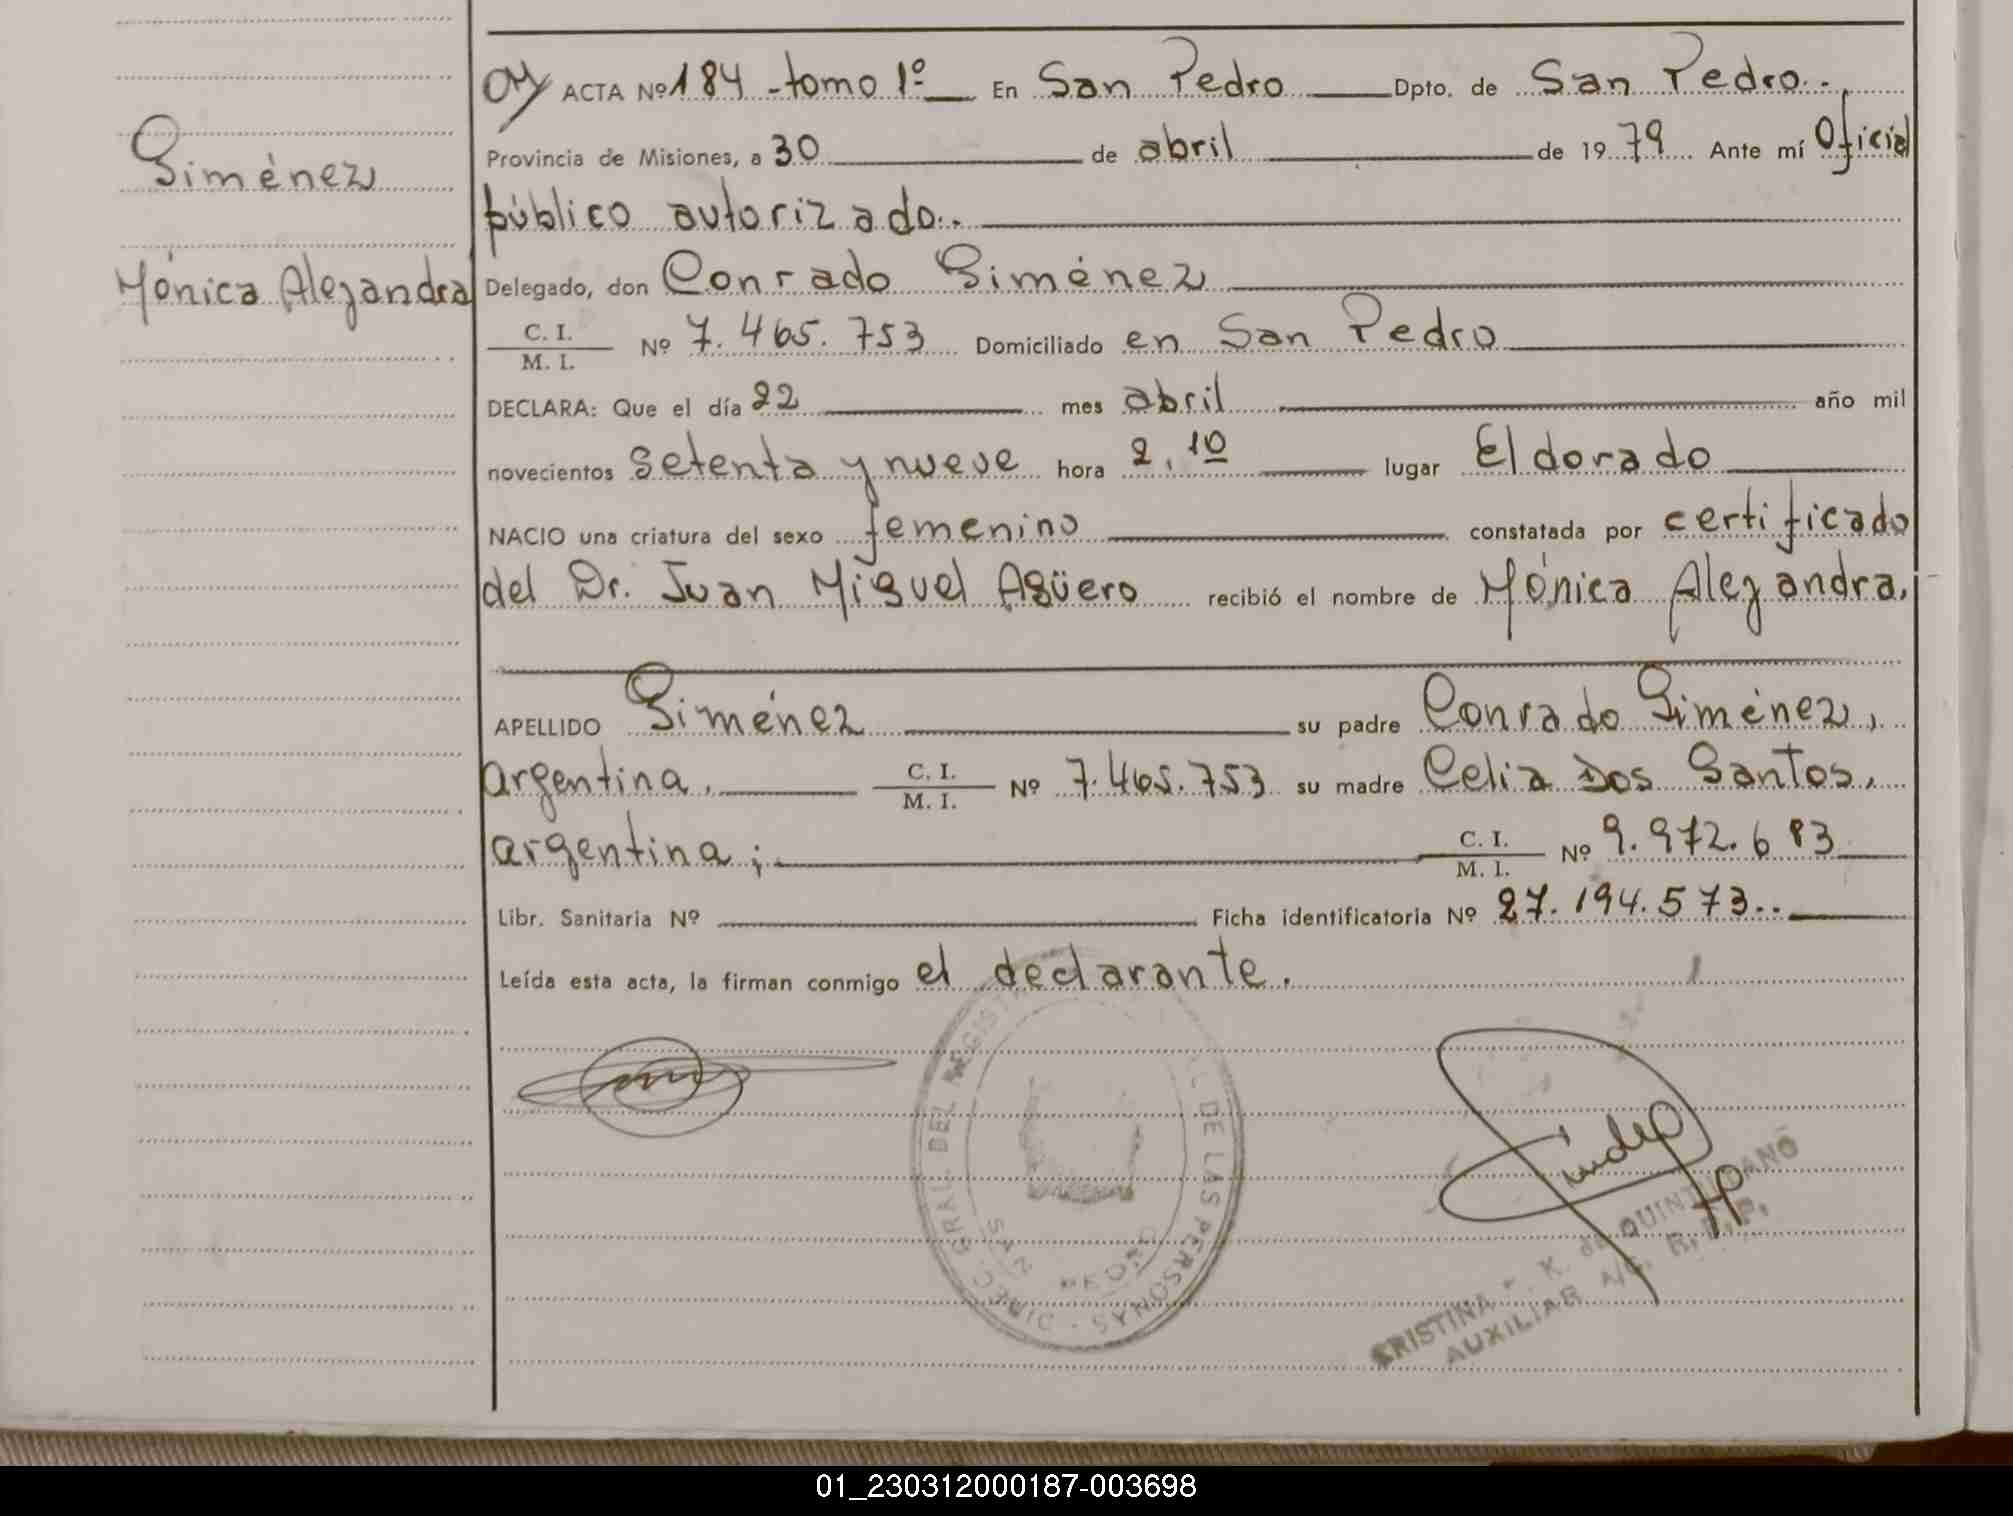 ACTA Nº 184 - tomo 1º En San Pedro Dpto. de San Pedro.-
Provincia de Misiones, a 30 de abril de 1979 Ante mí Oficial
Giménez
público autorizado.-
Mónica Alejandra
Delegado, don Conrado Giménez
C. I.
M. I. Nº 7.465.753 Domiciliado en San Pedro
DECLARA: Que el día 22 mes abril año mil
novecientos setenta y nueve hora 2,10 lugar Eldorado
NACIO una criatura del sexo femenino constatada por certificado
del Dr. Juan Miguel Agüero recibió el nombre de Mónica Alejandra.
APELLIDO Giménez su padre Conrado Giménez,
argentina. C. I.
M. I. Nº 7.465.753 su madre Celia Dos Santos,
argentina; C. I.
M. I. Nº 9.972.683
Libr. Sanitaria Nº Ficha identificatoria Nº 27.194.573..
Leída esta acta, la firman conmigo el declarante.
DIREC. GRAL. DEL REGISTR DE LAS PERSONAS
SAN PEDRO
CRISTINA K. de QUINTILIANO
AUXILIAR A/C. R.P.P.
01_230312000187-003698